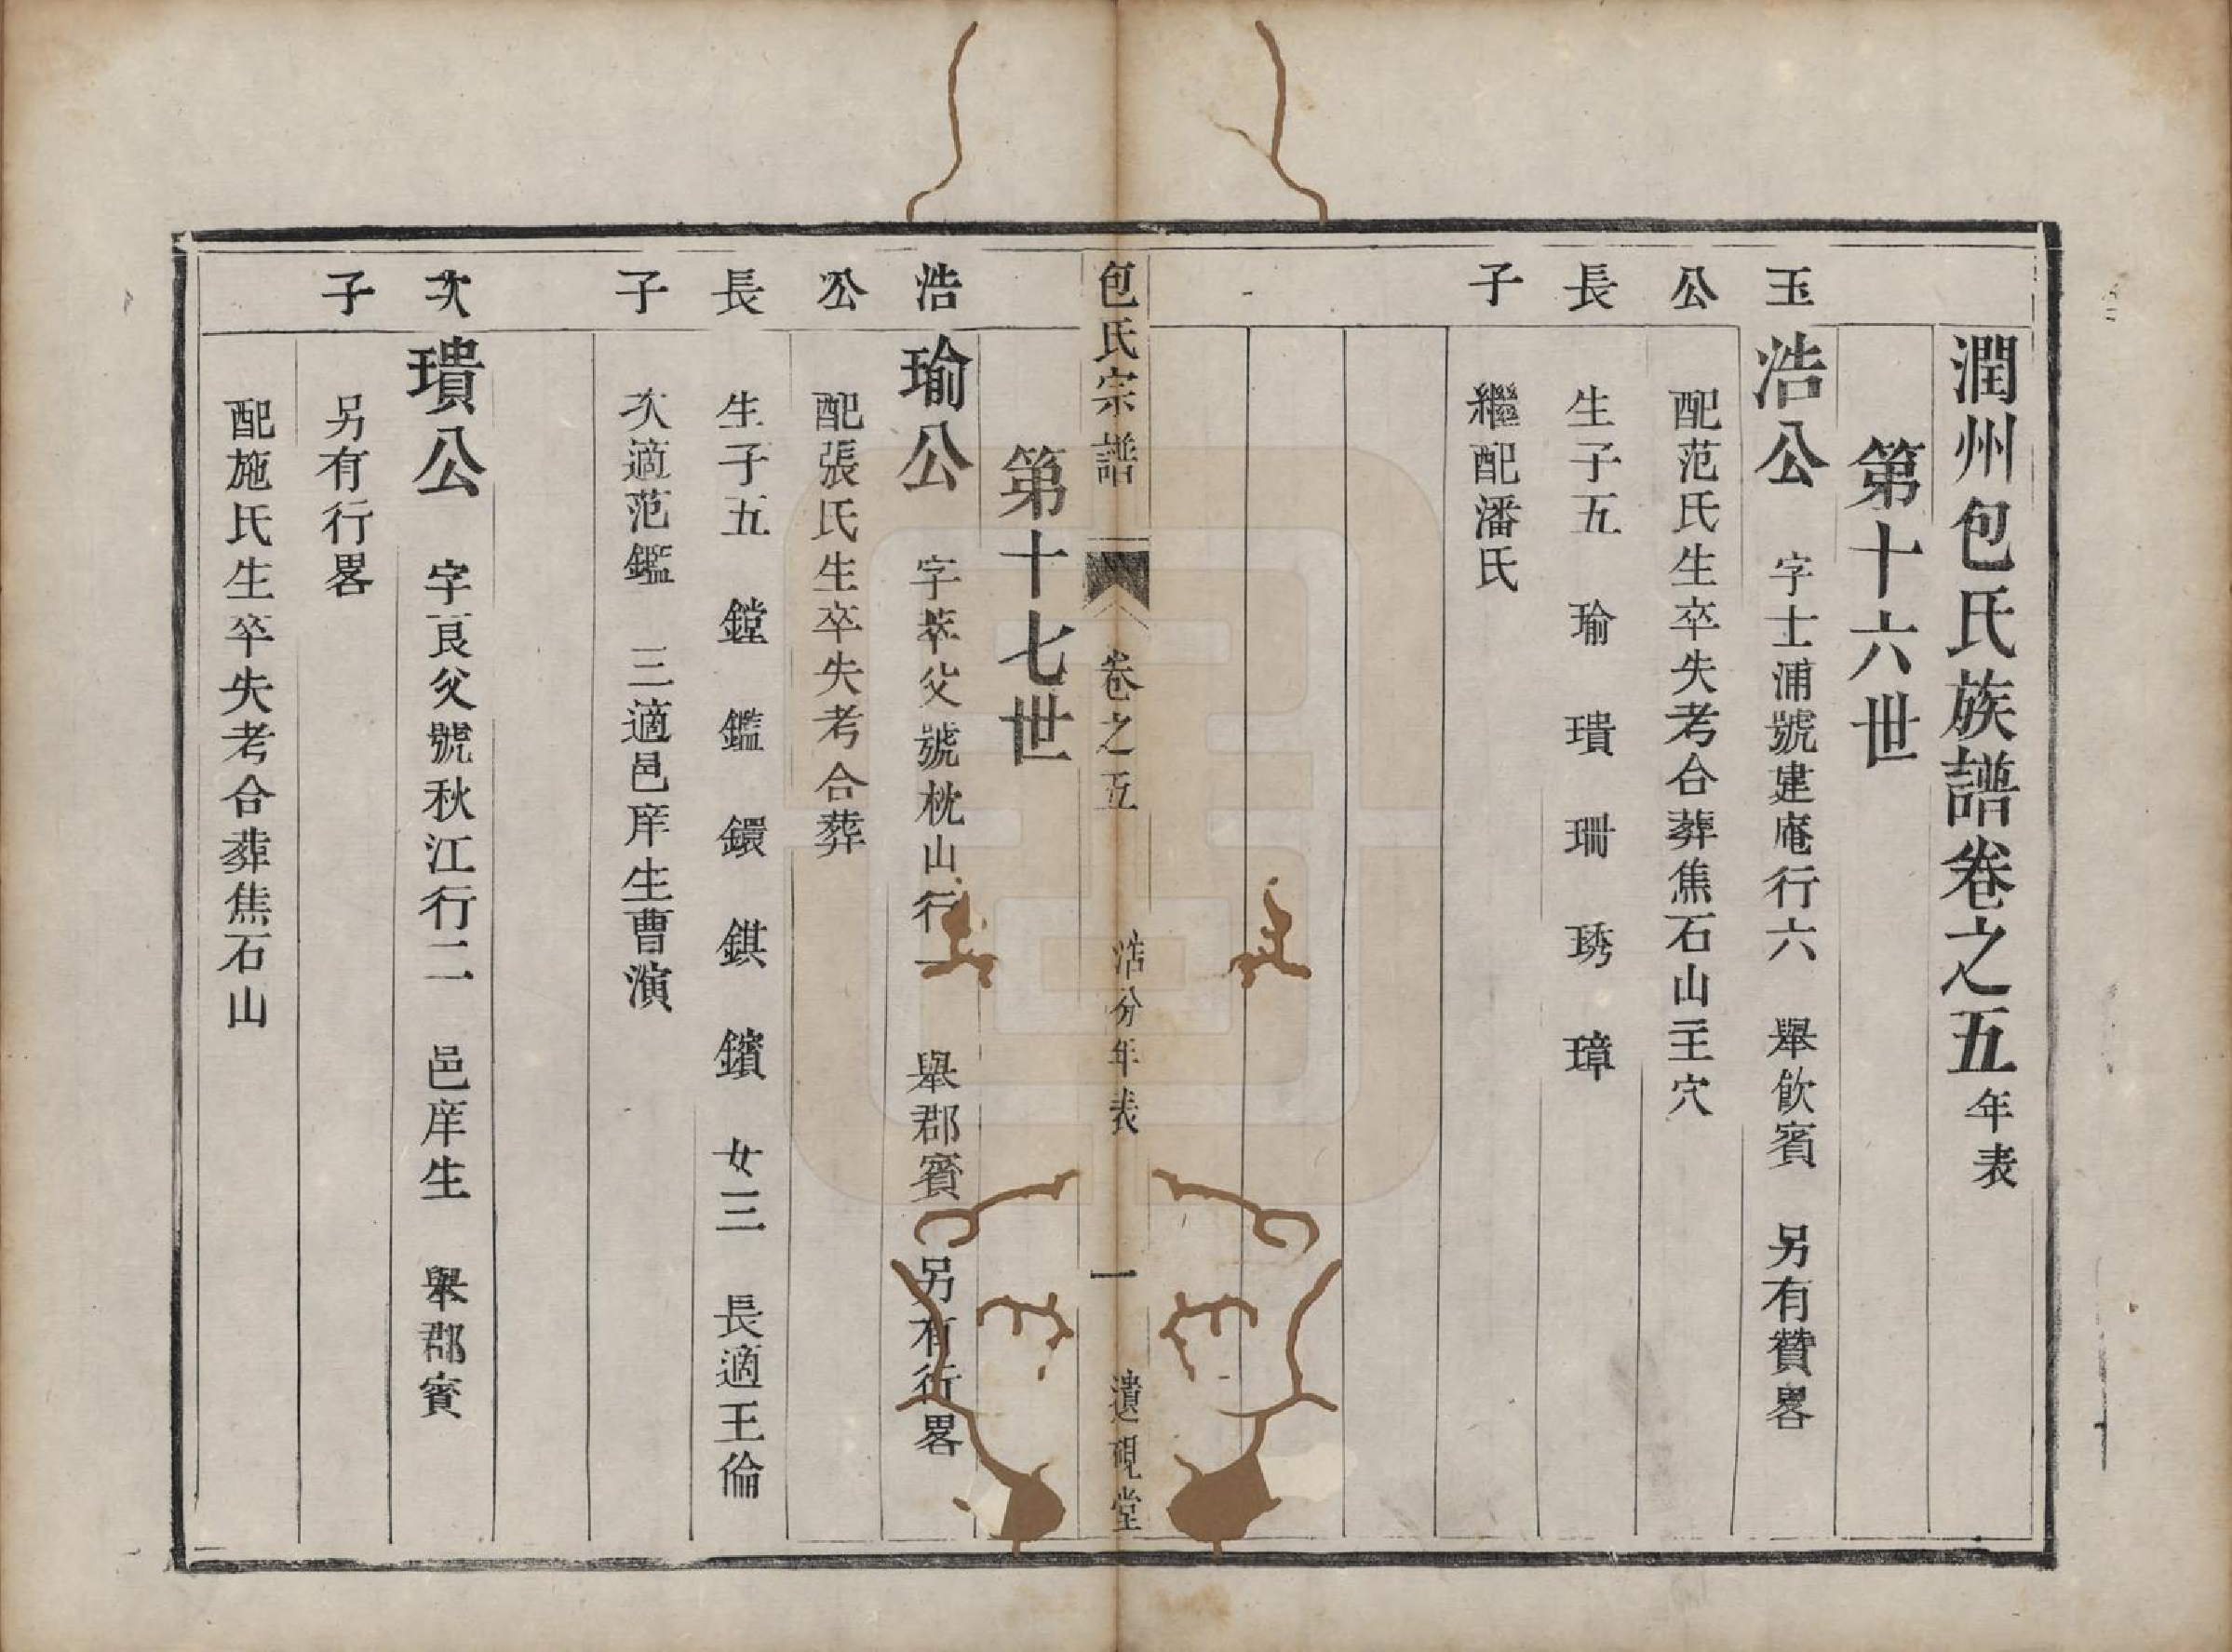 潤州包氏族譜卷之五年表
第十六世
玉公長子
浩公　字士浦號建庵行六　舉飲賓　另有贊畧
配范氏生卒失考合葬焦石山主穴
生子五　瑜　璝　珊　琇　璋
繼配潘氏
包氏宗譜　卷之五　浩分年表　一　遺硯堂
第十七世
浩公長子
瑜公　字萃父號枕山行一　舉郡賓　另有行畧
配張氏生卒失考合葬
生子五　鏜　鑑　鐶　錤　鑌　女三　長適王倫
次適范鑑　三適邑庠生曹演
次子
璝公　字良父號秋江行二　邑庠生　舉郡賓
另有行畧
配施氏生卒失考合葬焦石山